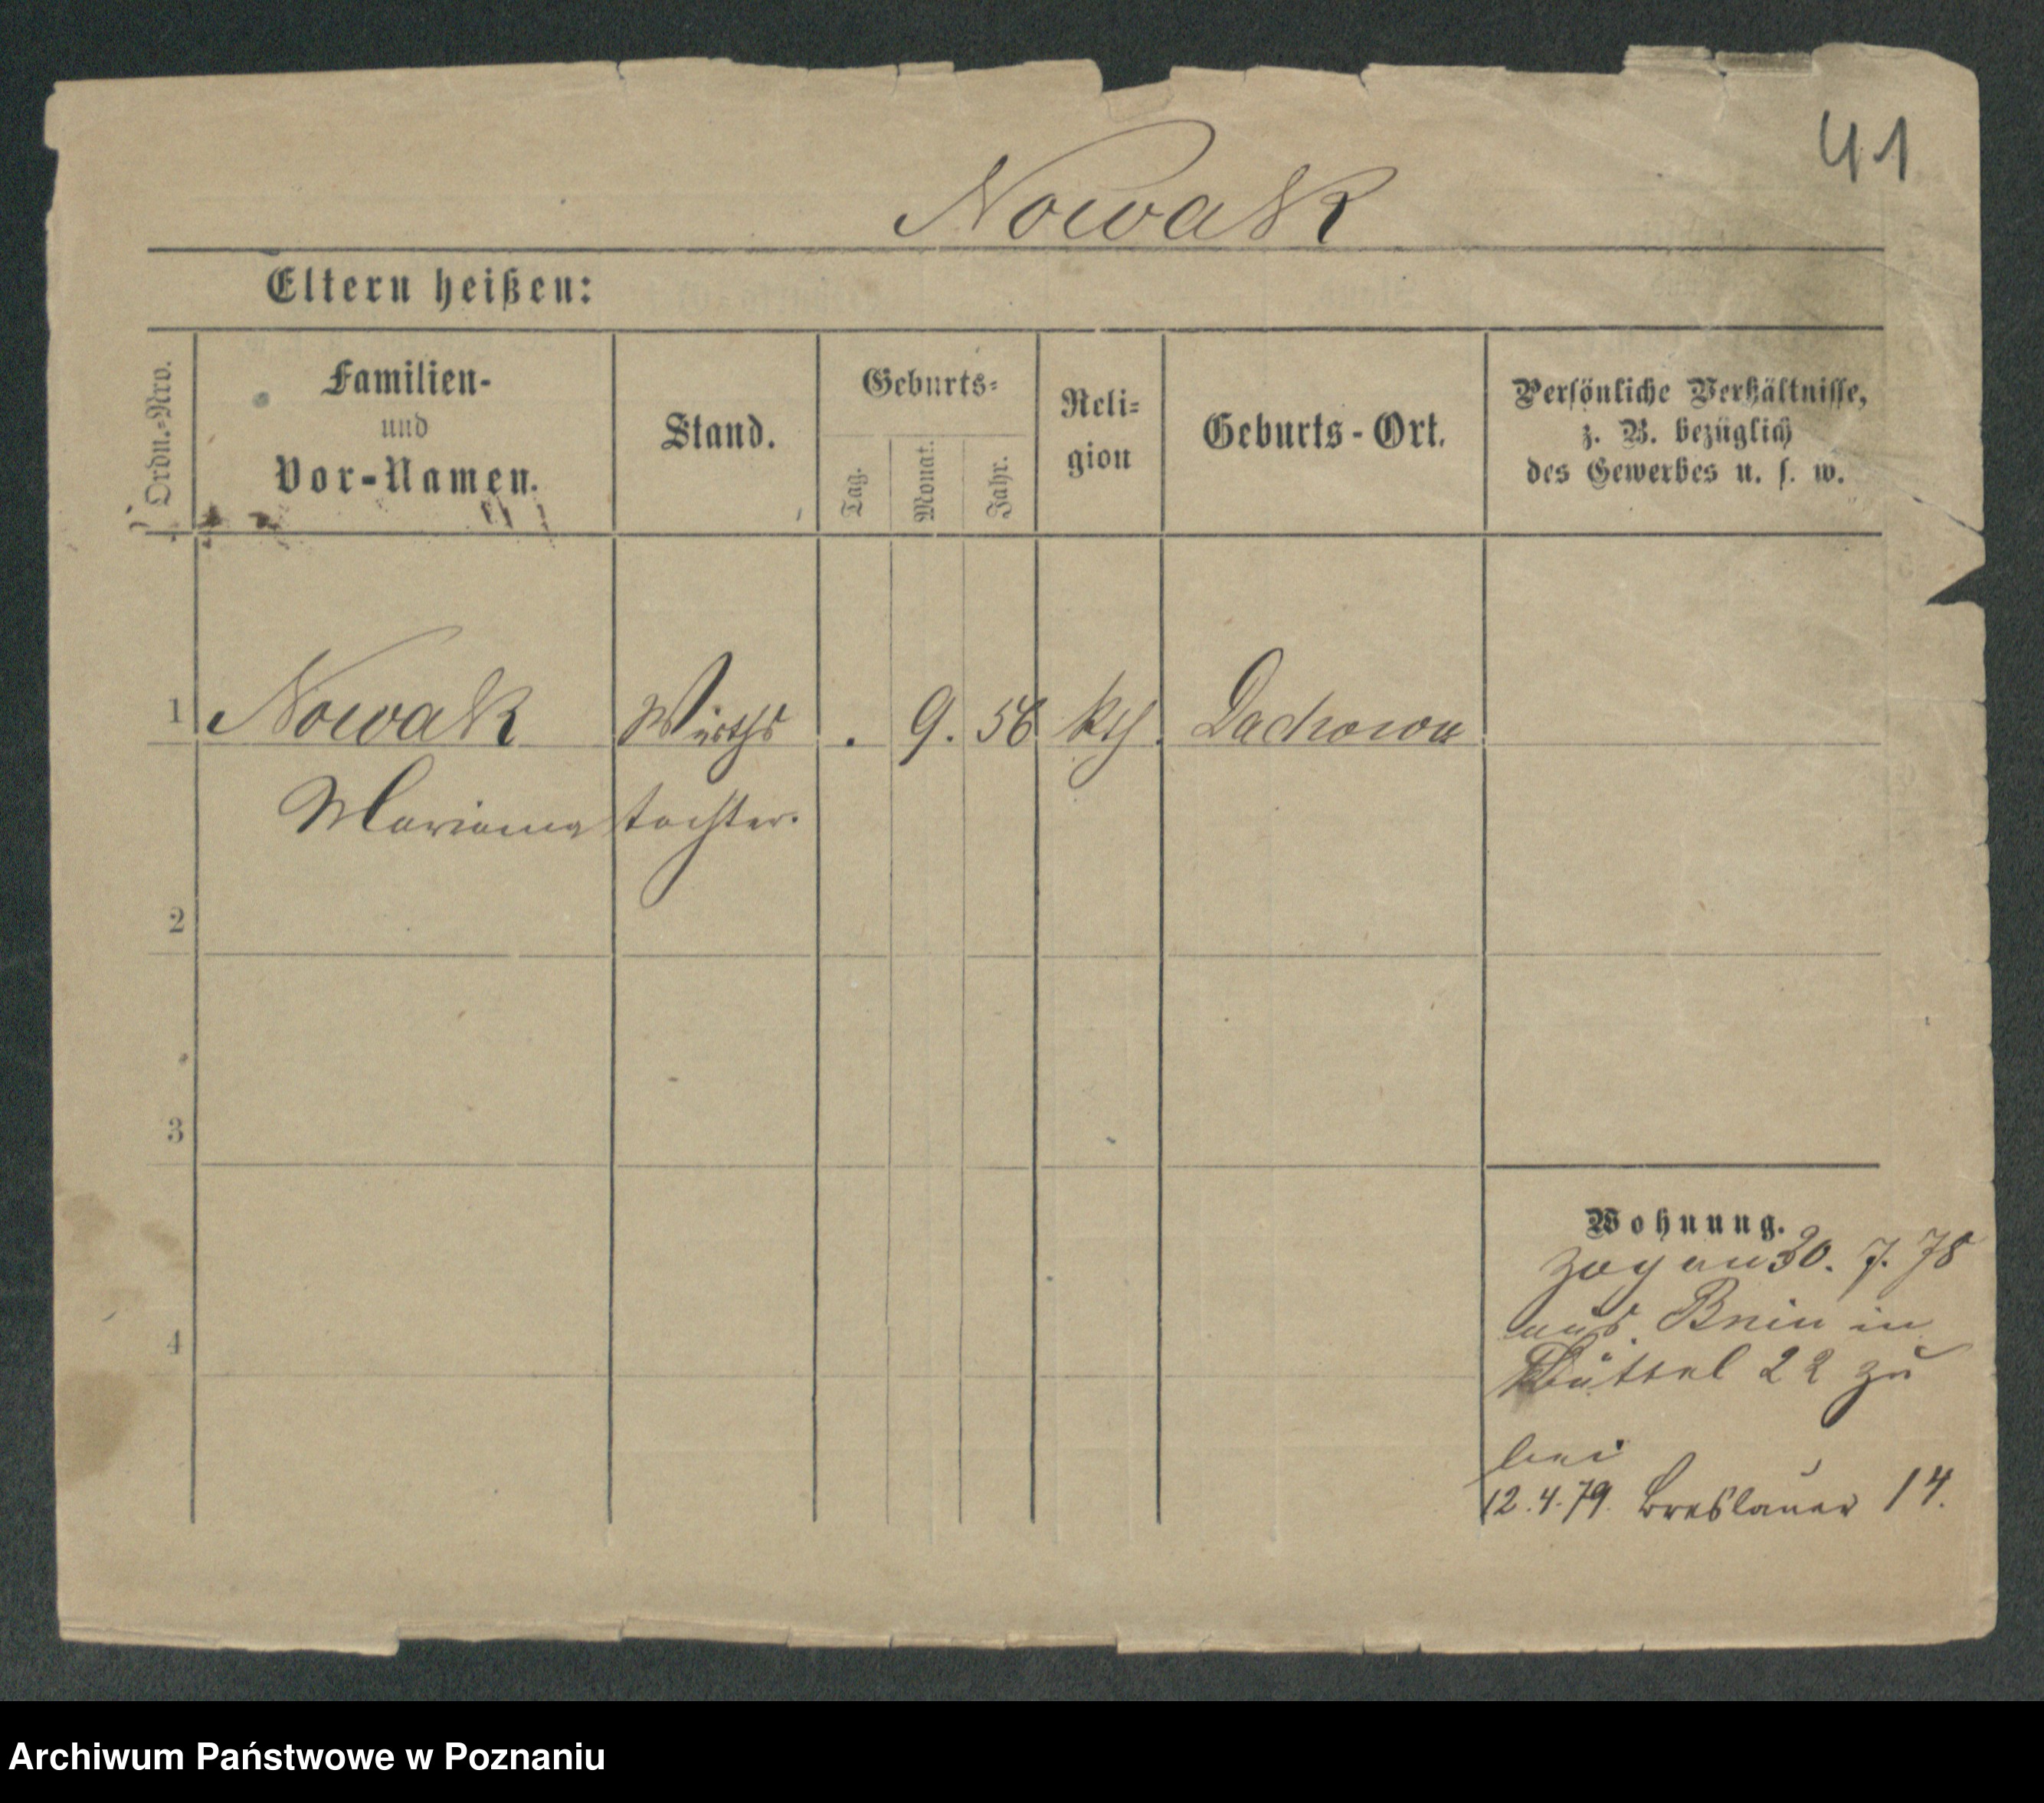 41
Nowak
Eltern heißen:
Ordn.-Nro.
Familien-
und
Vor-Namen.
Stand.
Geburts-
Tag.
Monat.
Jahr.
Reli-
gion
Geburts-Ort.
Persönliche Verhältnisse,
z. B. bezüglich
des Gewerbes u. s. w.
1 Nowak Wirths . 9. 56 kth. Dachowa
Marianna tochter.
2
3
4
Wohnung.
zog am 30. 7. 78
aus Bnin in
Büttel 22 zu
bei
12.4.79. Breslauer 14.
Archiwum Państwowe w Poznaniu